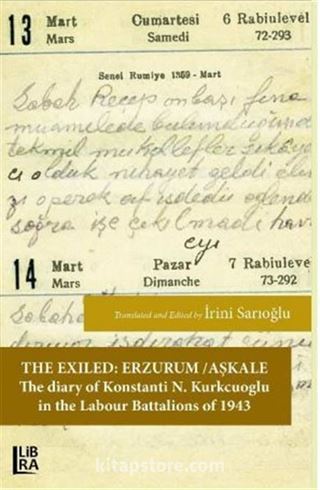 13 Mart Cumartesi 6 Rabiulevel
Mars Samedi 72-293
Senei Rumiye 1359 - Mart
Sabah Recep onbaşı fena
muamelede bulunduğundan
tekmil mukellefler şikâye
cı olduk nihayet geldi
operek af isdedi
soğra işe çıkılmadı hava
eyi
14 Mart Pazar 7 Rabiulevel
Mars Dimanche 73-292
Sabah
Translated and Edited by İrini Sarıoğlu
THE EXILED: ERZURUM /AŞKALE
The diary of Konstanti N. Kurkcuoglu
in the Labour Battalions of 1943
LiB
RA
kitapstore.com